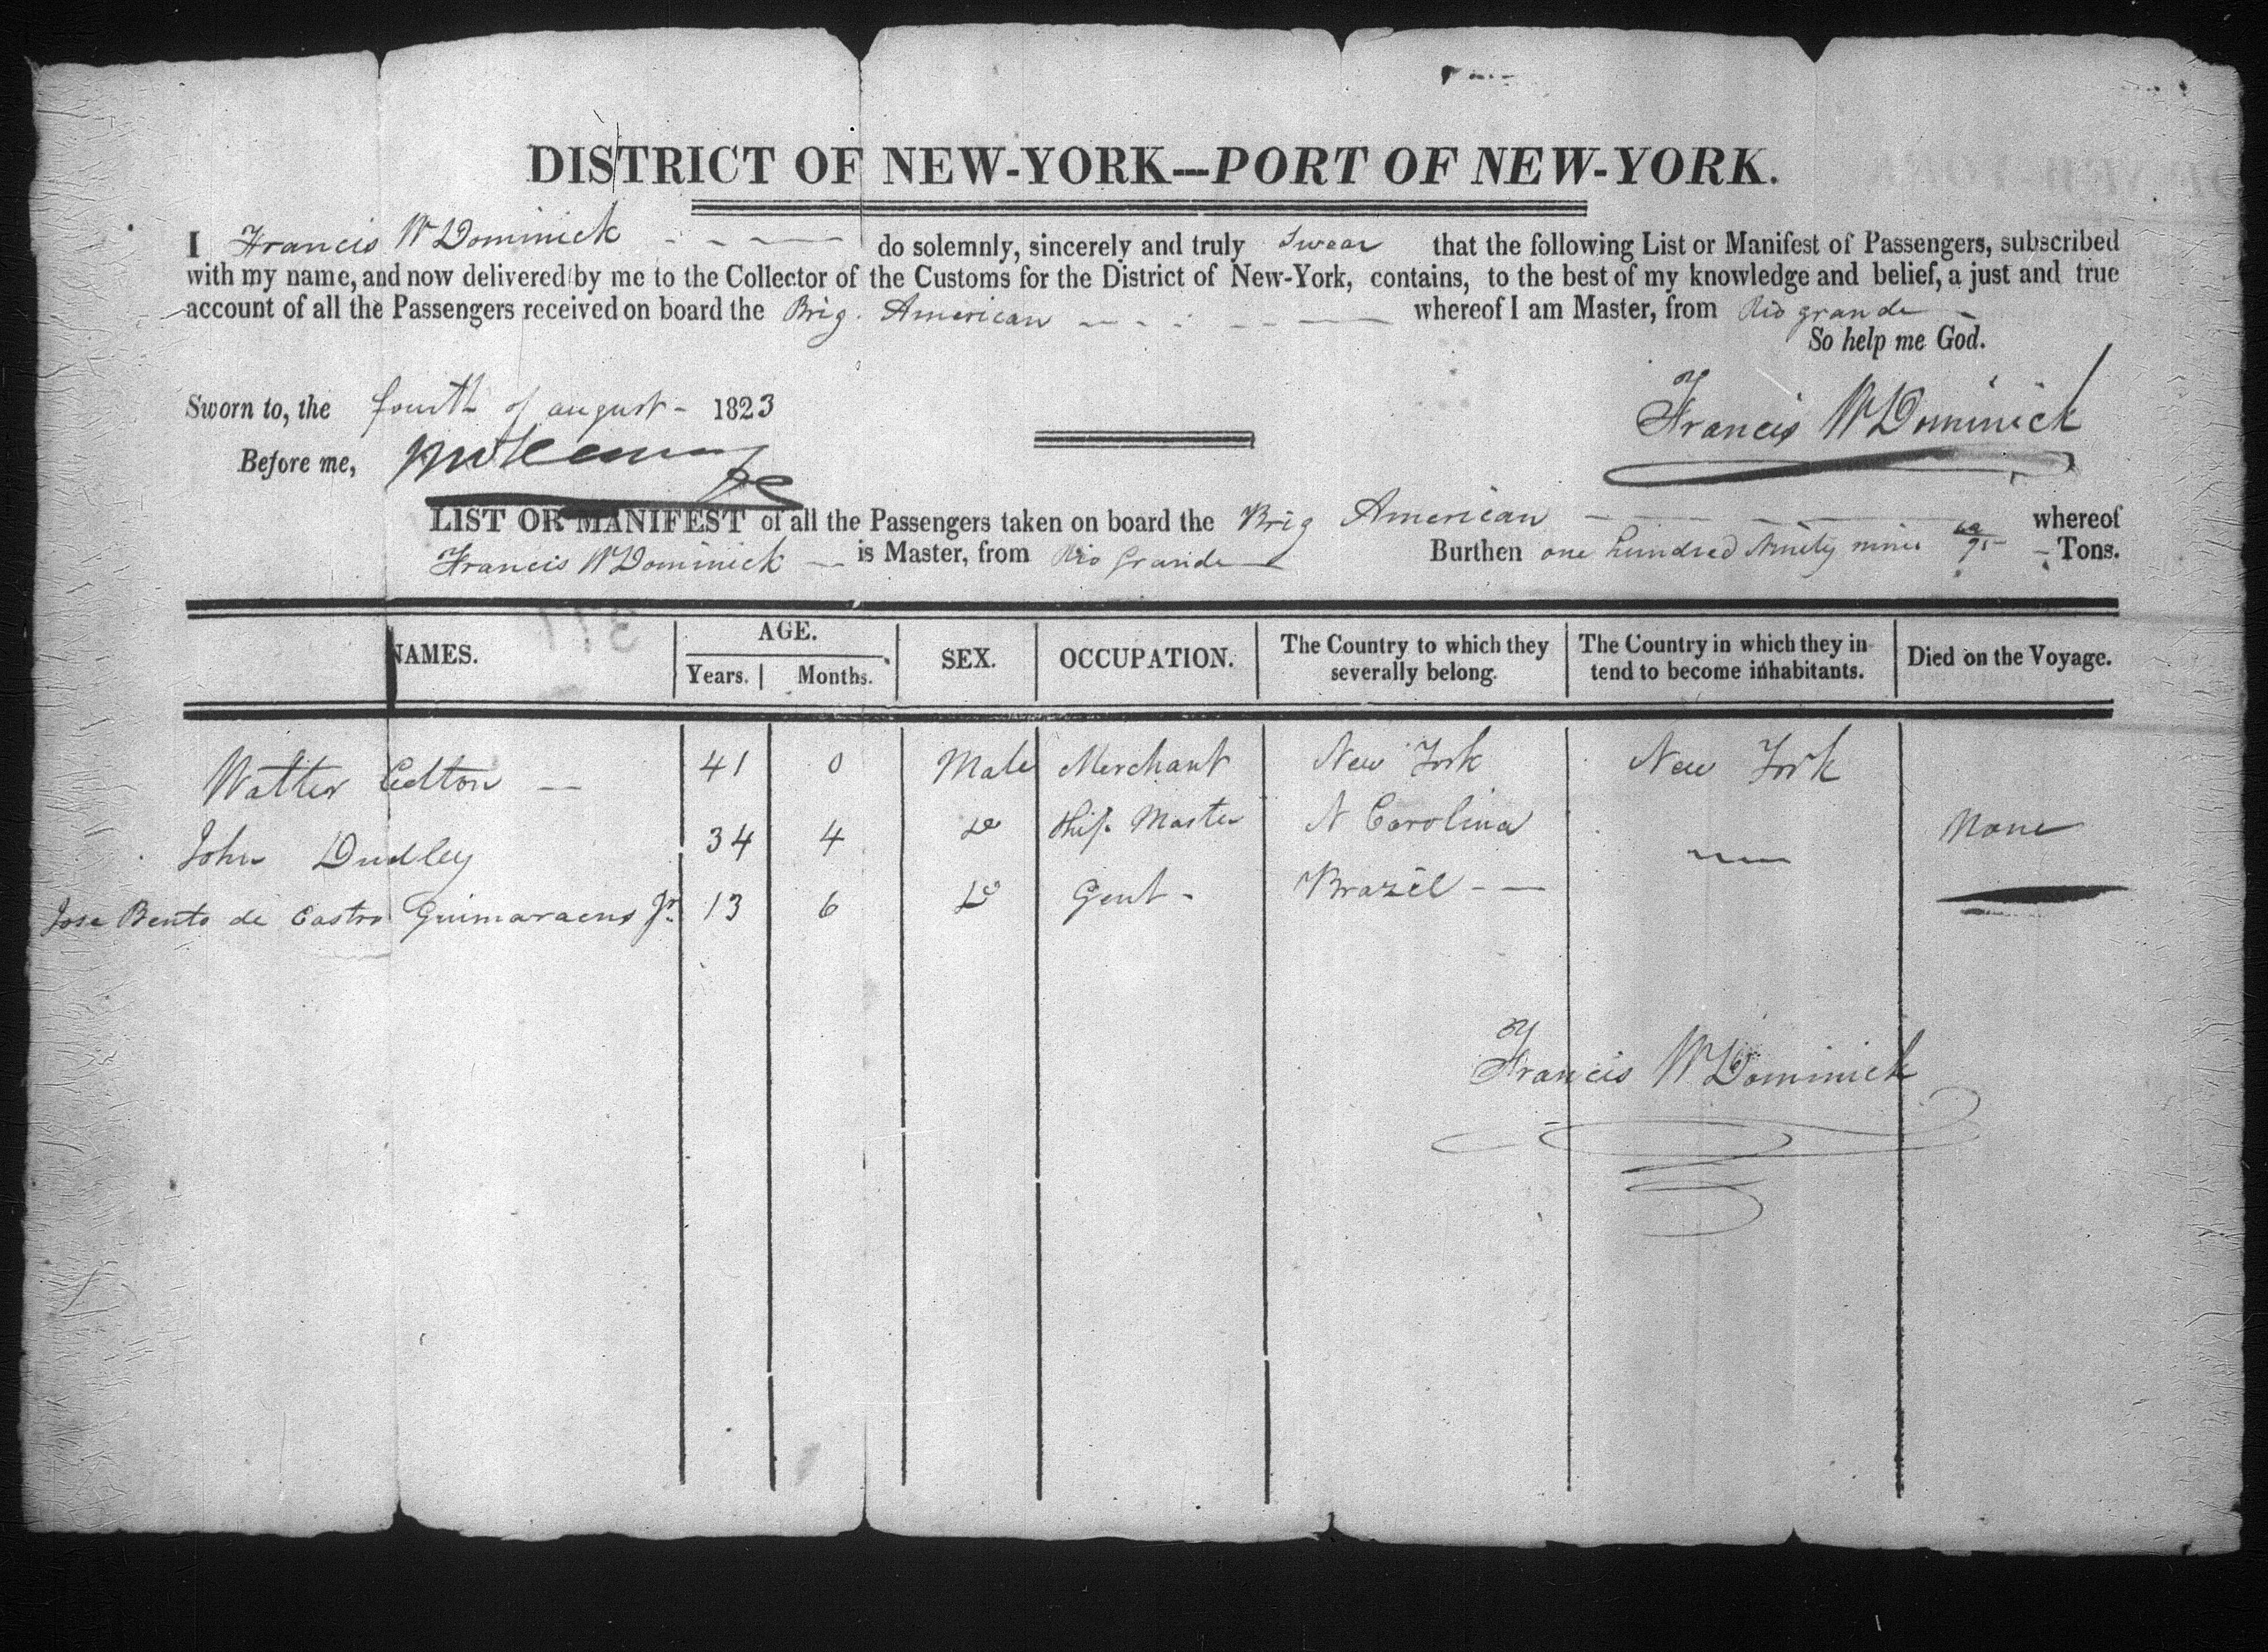 DISTRICT OF NEW-YORK---PORT OF NEW-YORK.
I Francis W Dominick do solemnly, sincerely and truly Swear that the following List or Manifest of Passengers, subscribed
with my name, and now delivered by me to the Collector of the Customs for the District of New-York, contains, to the best of my knowledge and belief, a just and true
account of all the Passengers received on board the Brig. American whereof I am Master, from Rio grande
So help me God.
Sworn to, the fourth of august - 1823
Francis W Dominick
Before me,
LIST OR MANIFEST of all the Passengers taken on board the Brig American whereof
Francis W Dominick is Master, from Rio Grande Burthen one hundred Ninety nine /95 Tons.
NAMES. AGE. Years. Months. SEX. OCCUPATION. The Country to which they severally belong. The Country in which they intend to become inhabitants. Died on the Voyage.
Walter 41 0 Male Merchant New York New York
John Dudley 34 4 Do Ship Master N Carolina None
Jose Bento de Castro Guimaraens Jr. 13 6 Do Gent - Brazil - —
Francis W Dominick